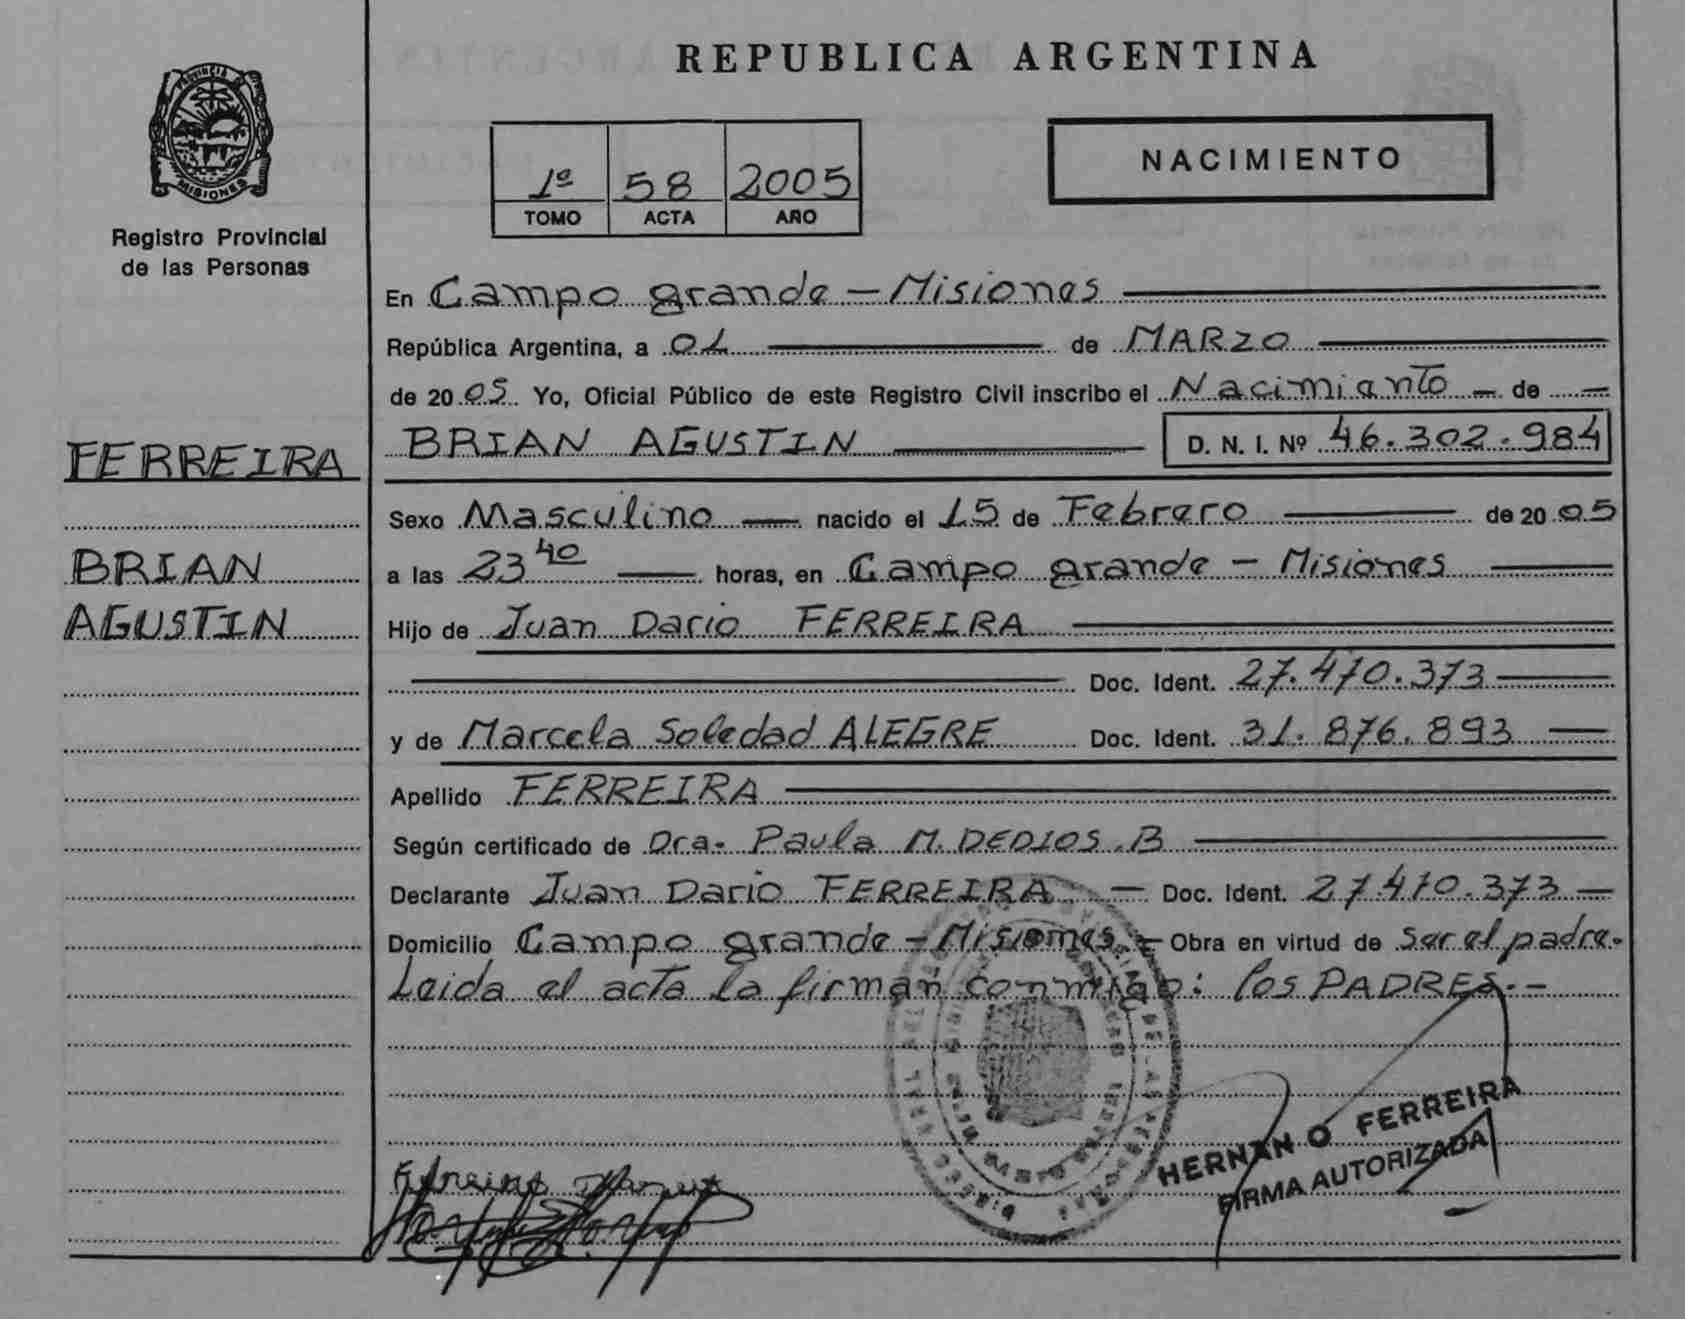 REPUBLICA ARGENTINA
PROVINCIA DE
MISIONES
Registro Provincial
de las Personas
1º 58 2005
TOMO ACTA AÑO
NACIMIENTO
En Campo grande - Misiones
República Argentina, a 01 de MARZO
de 2005 Yo, Oficial Público de este Registro Civil inscribo el Nacimiento - de -
FERREIRA
BRIAN AGUSTIN D. N. I. Nº 46.302.984
Sexo Masculino nacido el 15 de Febrero de 2005
BRIAN
a las 23 40 horas, en Campo grande - Misiones
AGUSTIN
Hijo de Juan Dario FERREIRA
Doc. Ident. 27.470.373
y de Marcela Soledad ALEGRE Doc. Ident. 31.876.893
Apellido FERREIRA
Según certificado de Dra. Paula M. DEDIOS.B
Declarante Juan Dario FERREIRA - Doc. Ident. 27.470.373
Domicilio Campo grande - Misiones - Obra en virtud de ser el padre.
Leida el acta la firman conmigo: los PADRES.-
HERNAN O FERREIRA
FIRMA AUTORIZADA